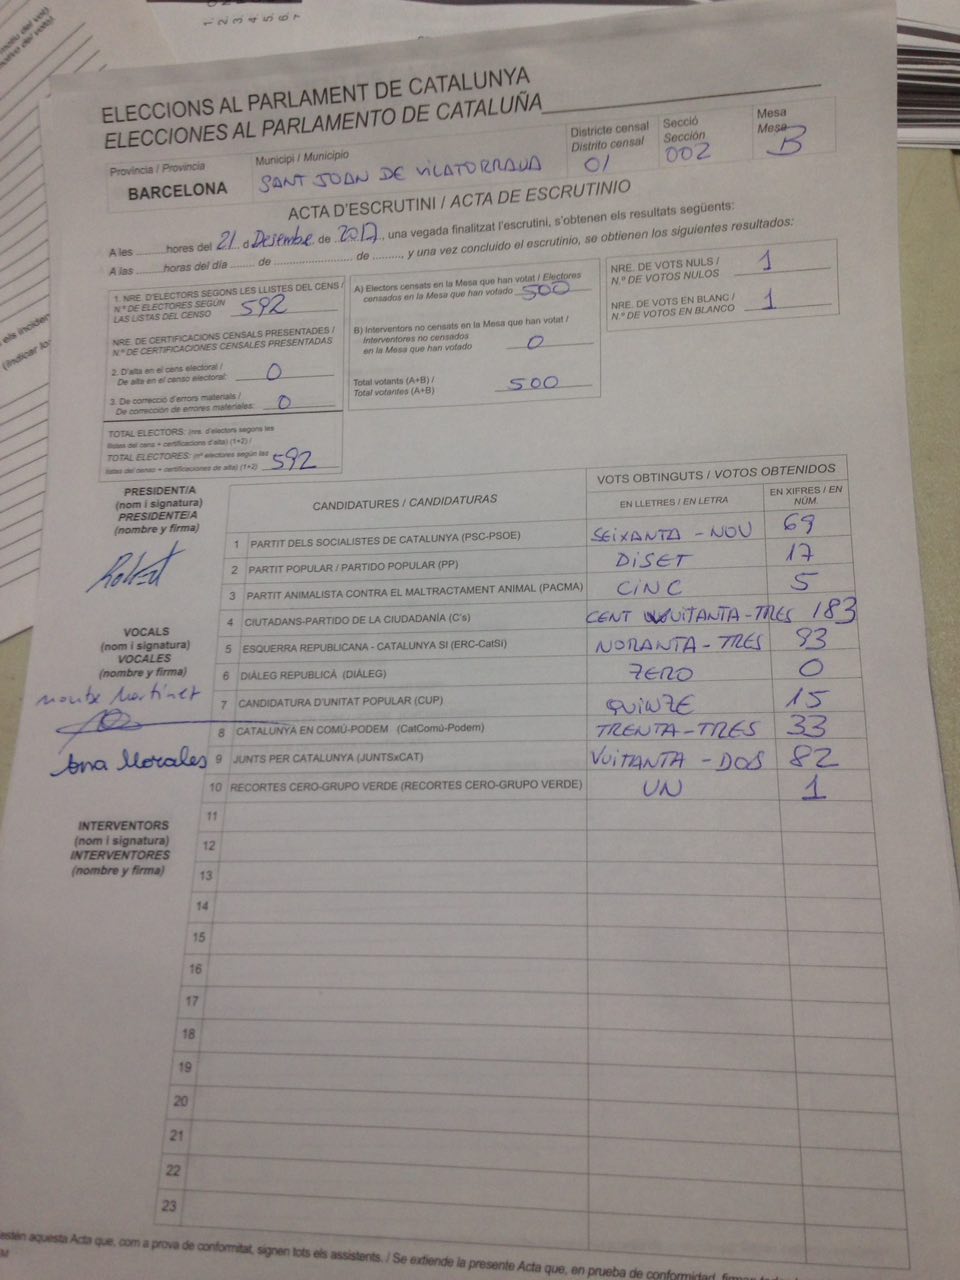 ELECCIONS AL PARLAMENT DE CATALUNYA
ELECCIONES AL PARLAMENTO DE CATALUÑA
Província / Provincia
BARCELONA
Municipi / Municipio
SANT JOAN DE VILATORRADA
Districte censal
Distrito censal
01
Secció
Sección
002
Mesa
Mesa
B
ACTA D'ESCRUTINI / ACTA DE ESCRUTINIO
A les ........hores del 21 d Desembre de 2017, una vegada finalitzat l'escrutini, s'obtenen els resultats següents:
A las ........horas del día ........ de ........................ de ........, y una vez concluido el escrutinio, se obtienen los siguientes resultados:
1. NRE. D'ELECTORS SEGONS LES LLISTES DEL CENS /
N.º DE ELECTORES SEGÚN
LAS LISTAS DEL CENSO 592
NRE. DE CERTIFICACIONS CENSALS PRESENTADES /
N.º DE CERTIFICACIONES CENSALES PRESENTADAS
2. D'alta en el cens electoral /
De alta en el censo electoral: 0
3. De correcció d'errors materials /
De corrección de errores materiales: 0
TOTAL ELECTORS: (nre. d'electors segons les
llistes del cens + certificacions d'alta) (1+2) /
TOTAL ELECTORES: (nº electores según las
listas del censo + certificaciones de alta) (1+2) 592
A) Electors censats en la Mesa que han votat / Electores
censados en la Mesa que han votado 500
B) Interventors no censats en la Mesa que han votat /
Interventores no censados
en la Mesa que han votado 0
Total votants (A+B) /
Total votantes (A+B) 500
NRE. DE VOTS NULS /
N.º DE VOTOS NULOS 1
NRE. DE VOTS EN BLANC /
N.º DE VOTOS EN BLANCO 1
PRESIDENT/A
(nom i signatura)
PRESIDENTE/A
(nombre y firma)
VOCALS
(nom i signatura)
VOCALES
(nombre y firma)
Montse Martínez
Ana Morales
INTERVENTORS
(nom i signatura)
INTERVENTORES
(nombre y firma)
CANDIDATURES / CANDIDATURAS
VOTS OBTINGUTS / VOTOS OBTENIDOS
EN LLETRES / EN LETRA
EN XIFRES / EN NÚM.
1 PARTIT DELS SOCIALISTES DE CATALUNYA (PSC-PSOE) SEIXANTA - NOU 69
2 PARTIT POPULAR / PARTIDO POPULAR (PP) DISET 17
3 PARTIT ANIMALISTA CONTRA EL MALTRACTAMENT ANIMAL (PACMA) CINC 5
4 CIUTADANS-PARTIDO DE LA CIUDADANÍA (C's) CENT VUITANTA-TRES 183
5 ESQUERRA REPUBLICANA - CATALUNYA SI (ERC-CatSí) NORANTA - TRES 93
6 DIÀLEG REPUBLICÀ (DIÀLEG) ZERO 0
7 CANDIDATURA D'UNITAT POPULAR (CUP) QUINZE 15
8 CATALUNYA EN COMÚ-PODEM (CatComú-Podem) TRENTA-TRES 33
9 JUNTS PER CATALUNYA (JUNTSxCAT) VUITANTA - DOS 82
10 RECORTES CERO-GRUPO VERDE (RECORTES CERO-GRUPO VERDE) UN 1
11
12
13
14
15
16
17
18
19
20
21
22
23
estén aquesta Acta que, com a prova de conformitat, signen tots els assistents. / Se extiende la presente Acta que, en prueba de conformidad, firman